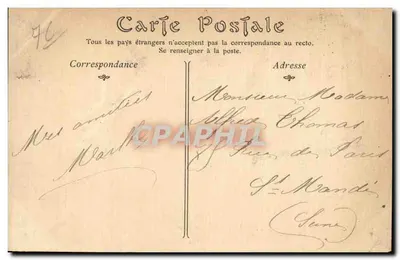 76
Carte Postale
Tous les pays étrangers n'acceptent pas la correspondance au recto.
Se renseigner à la poste.
Correspondance
Adresse
Mes amitiés
Marthe
Monsieur Madame
Alfred Thomas
Rue de Paris
St Mandé
(Seine)
CPARAMA.COM